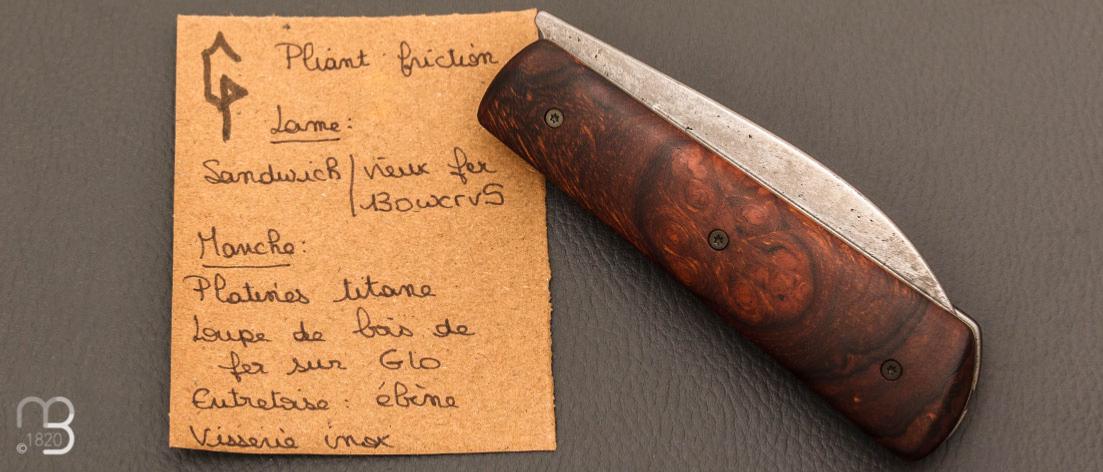 Pliant friction
Lame:
Sandwich/vieux fer
130wcrv5
Manche:
Platines titane
Loupe de bois de
fer sur G10
Entretoise: ébène
Visserie inox
MB
©1820